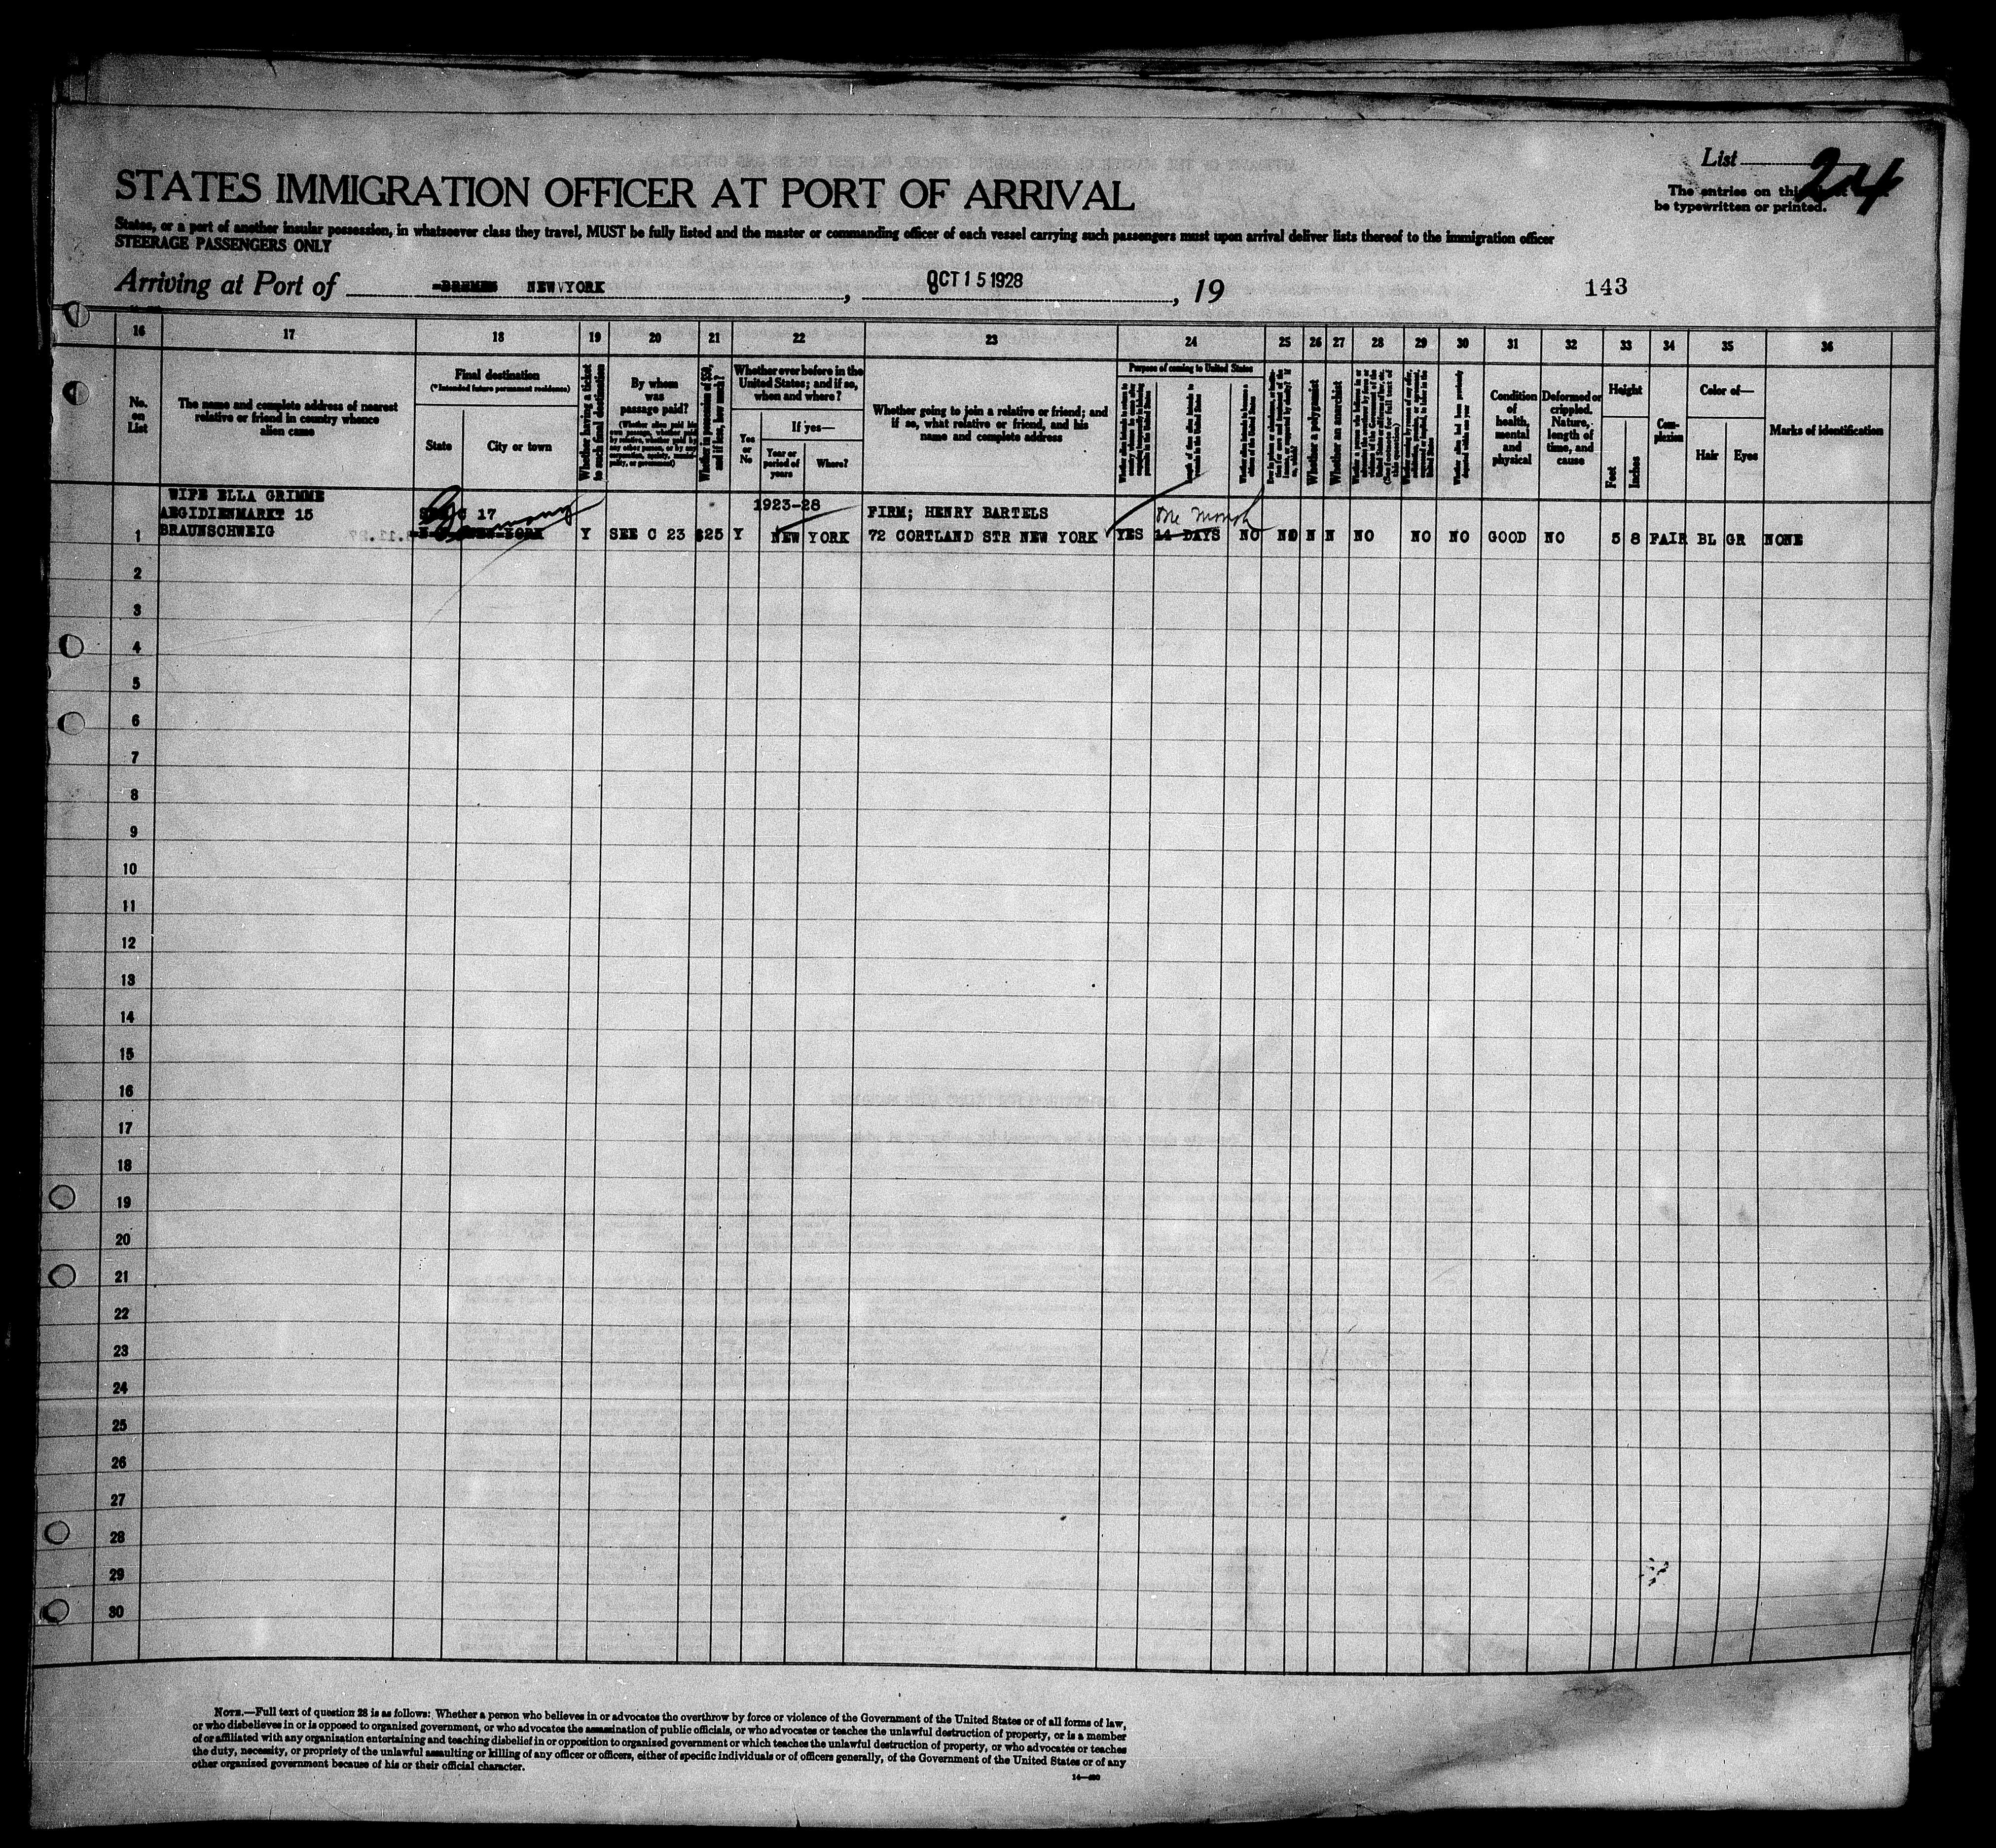 List 24
The entries on this
be typewritten or printed.
STATES IMMIGRATION OFFICER AT PORT OF ARRIVAL
States, or a part of another insular possession, in whatsoever class they travel, MUST be fully listed and the master or commanding officer of each vessel carrying such passengers must upon arrival deliver lists thereof to the immigration officer
STEERAGE PASSENGERS ONLY
Arriving at Port of BREMEN NEW YORK, OCT 15 1928, 19
143
16 17 18 19 20 21 22 23 24 25 26 27 28 29 30 31 32 33 34 35 36
No. on List
The name and complete address of nearest
relative or friend in country whence
alien came
Final destination
(*Intended future permanent residence)
State
City or town
Whether having a ticket
to such final destination
By whom
was
passage paid?
(Whether alien paid his
own passage, whether paid
by relative, whether paid by
any other person, or by any
corporation, society, munici-
pality, or government)
Whether in possession of $50,
and if less, how much?
Whether ever before in the
United States; and if so,
when and where?
Yes
or
No
If yes—
Year or
period of
years
Where?
Whether going to join a relative or friend; and
if so, what relative or friend, and his
name and complete address
Purpose of coming to United States
Whether a polygamist
Whether an anarchist
Condition
of
health,
mental
and
physical
Deformed or
crippled.
Nature,
length of
time, and
cause
Height
Feet
Inches
Com-
plexion
Color of—
Hair
Eyes
Marks of identification
WIFE ELLA GRIMME
AEGIDIENMARKT 15
BRAUNSCHWEIG
SEE C 17
Germany
NEW YORK
1 Y SEE C 23 $25 Y
1923-28
NEW YORK
FIRM; HENRY BARTELS
72 CORTLAND STR NEW YORK
One Month
YES 14 DAYS NO NO N N NO NO NO GOOD NO 5 8 FAIR BL GR NONE
2
3
4
5
6
7
8
9
10
11
12
13
14
15
16
17
18
19
20
21
22
23
24
25
26
27
28
29
30
NOTE.—Full text of question 28 is as follows: Whether a person who believes in or advocates the overthrow by force or violence of the Government of the United States or of all forms of law,
or who disbelieves in or is opposed to organized government, or who advocates the assassination of public officials, or who advocates or teaches the unlawful destruction of property, or is a member
of or affiliated with any organization entertaining and teaching disbelief in or opposition to organized government or which teaches the unlawful destruction of property, or who advocates or teaches
the duty, necessity, or propriety of the unlawful assaulting or killing of any officer or officers, either of specific individuals or of officers generally, of the Government of the United States or of any
other organized government because of his or their official character.